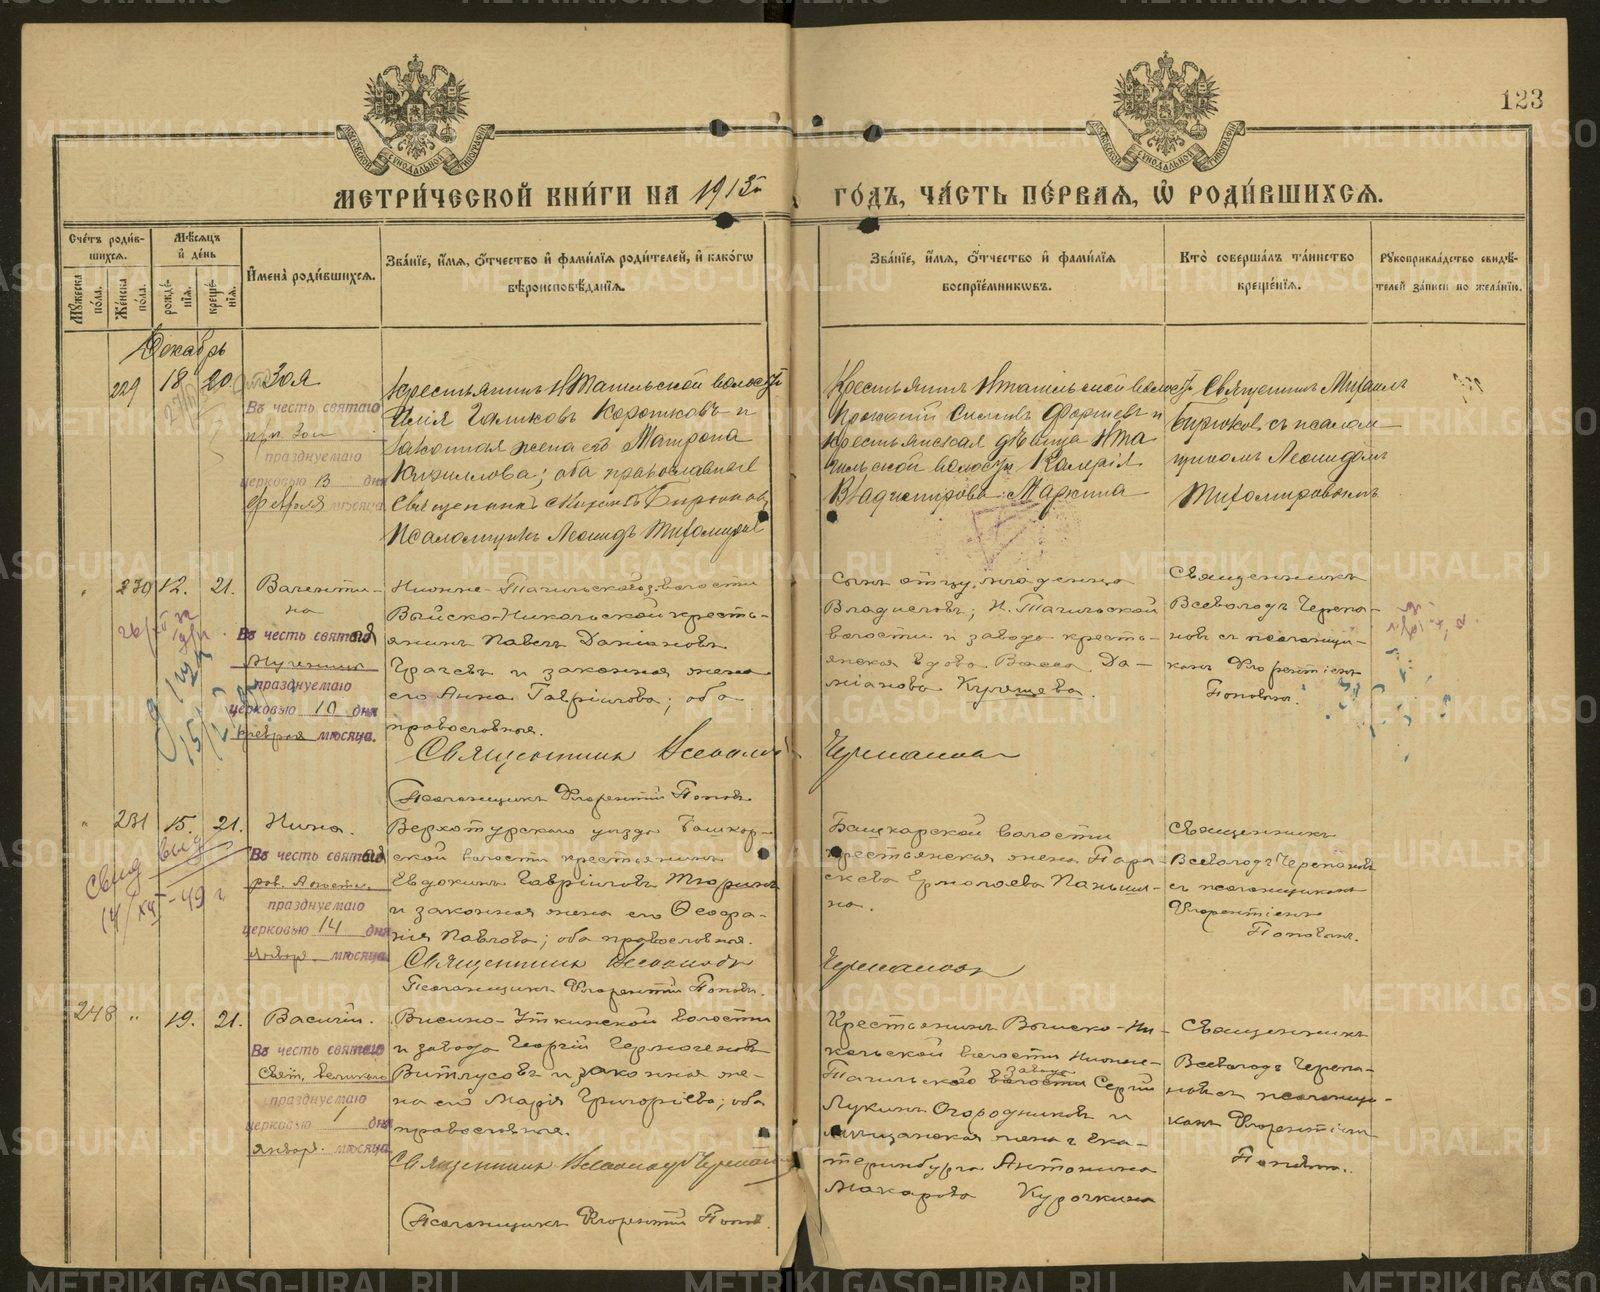 123
МОСКОВСКОЙ СѴНОДАЛЬНОЙ ТИПОГРАФІИ
МОСКОВСКОЙ СѴНОДАЛЬНОЙ ТИПОГРАФІИ
МЕТРИ́ЧЕСКОЙ КНИ́ГИ НА 1913й
ГО́ДЪ, ЧА́СТЬ ПЕ́РВАЯ, Ѡ РОДИ́ВШИХСЯ.
Сче́тъ роди́в-
шихся.
Мꙋжеска по́ла.
Же́нска по́ла.
Мѣ́сяцъ и҆ де́нь
рожде́нія.
креще́нія.
И҆мена̀ роди́вшихся.
Зва́нїе, и҆́мя, ѻ҆́тчество и҆ фами́лїя роди́телей, и҆ како́гѡ
вѣроисповѣ́данїя.
Зва́нїе, и҆́мя, ѻ҆́тчество и҆ фами́лїя
воспрїе́мникѡвъ.
Кто̀ соверша́лъ та́инство
креще́нїя.
Рꙋкоприкла́дство свидѣ́-
телей за́писи по жела́нїю.
Декабрь
229 18 20 Зоя
Въ честь святаго
прп. Зои
празднуемаго
церковью 13 дня
февраля мѣсяца
Крестьянинъ НТагильской волости
Коротковъ и
законная жена его Матрона
Кириллова; оба православные
Священникъ Михаилъ Бирюковъ
Псаломщикъ Леонидъ Тихомировъ
Крестьянинъ НТагильской волости
и
крестьянская дѣвица НТа
гильской волости Калерія
Владимірова Маркина
Священникъ Михаилъ
Бирюковъ съ псалом
щикомъ Леонидомъ
Тихомировымъ
„ 230 12. 21. Валенти-
на
Въ честь святой
мученицы
празднуемаго
церковью 10 дня
февраля мѣсяца.
Нижне-Тагильскаго з. волости
Выйско-Никольской кресть-
янинъ Павелъ Даміановъ
Грачевъ и законная жена
его Анна Гавріилова; оба
православные.
Священникъ Всеволодъ
Черепановъ
Псаломщикъ Флорентій Поповъ
Сынъ отцу, младенца
Владиславъ; Н. Тагильской
волости и завода кресть-
янская вдова Васса Да-
міанова Кулешева.
Священникъ
Всеволодъ Черепа-
новъ съ псаломщи-
комъ Флорентіемъ
Поповымъ.
„ 231 15. 21. Нина.
Свид. выд
14/XII-49 г
Въ честь святой
рав. Апостол.
празднуемаго
церковью 14 дня
январ. мѣсяца
Верхотурскаго уѣзда Башкар-
ской волости крестьянинъ
Евдокимъ Гавріиловъ Тюринъ
и законная жена его Ѳеофа-
нія Павлова; оба православные.
Священникъ Всеволодъ
Черепановъ
Псаломщикъ Флорентій Поповъ.
Башкарской волости
крестьянская жена Пара-
скева Ермолаева Паньши-
на.
Священникъ
Всеволодъ Черепановъ
съ псаломщикомъ
Флорентіемъ
Поповымъ.
248 „ 19. 21. Василій.
Въ честь святаго
Свят. великаго
празднуемаго
церковью 1 дня
январ. мѣсяца
Висимо-Уткинской волости
и завода Георгій Гермогеновъ
Витлусовъ и законная же-
на его Марія Григоріева; оба
православные.
Священникъ Всеволодъ Черепановъ
Псаломщикъ Флорентій Поповъ.
Крестьянинъ Выйско-Ни-
кольской волости Нижне-
Тагильскаго завода Сергій
Лукинъ Огородниковъ и
мѣщанская жена г. Ека-
теринбурга Антонина
Макарова Курочкина
Священникъ
Всеволодъ Черепа-
новъ съ псаломщи-
комъ Флорентіемъ
Поповымъ.
METRIKI.GASO-URAL.RU